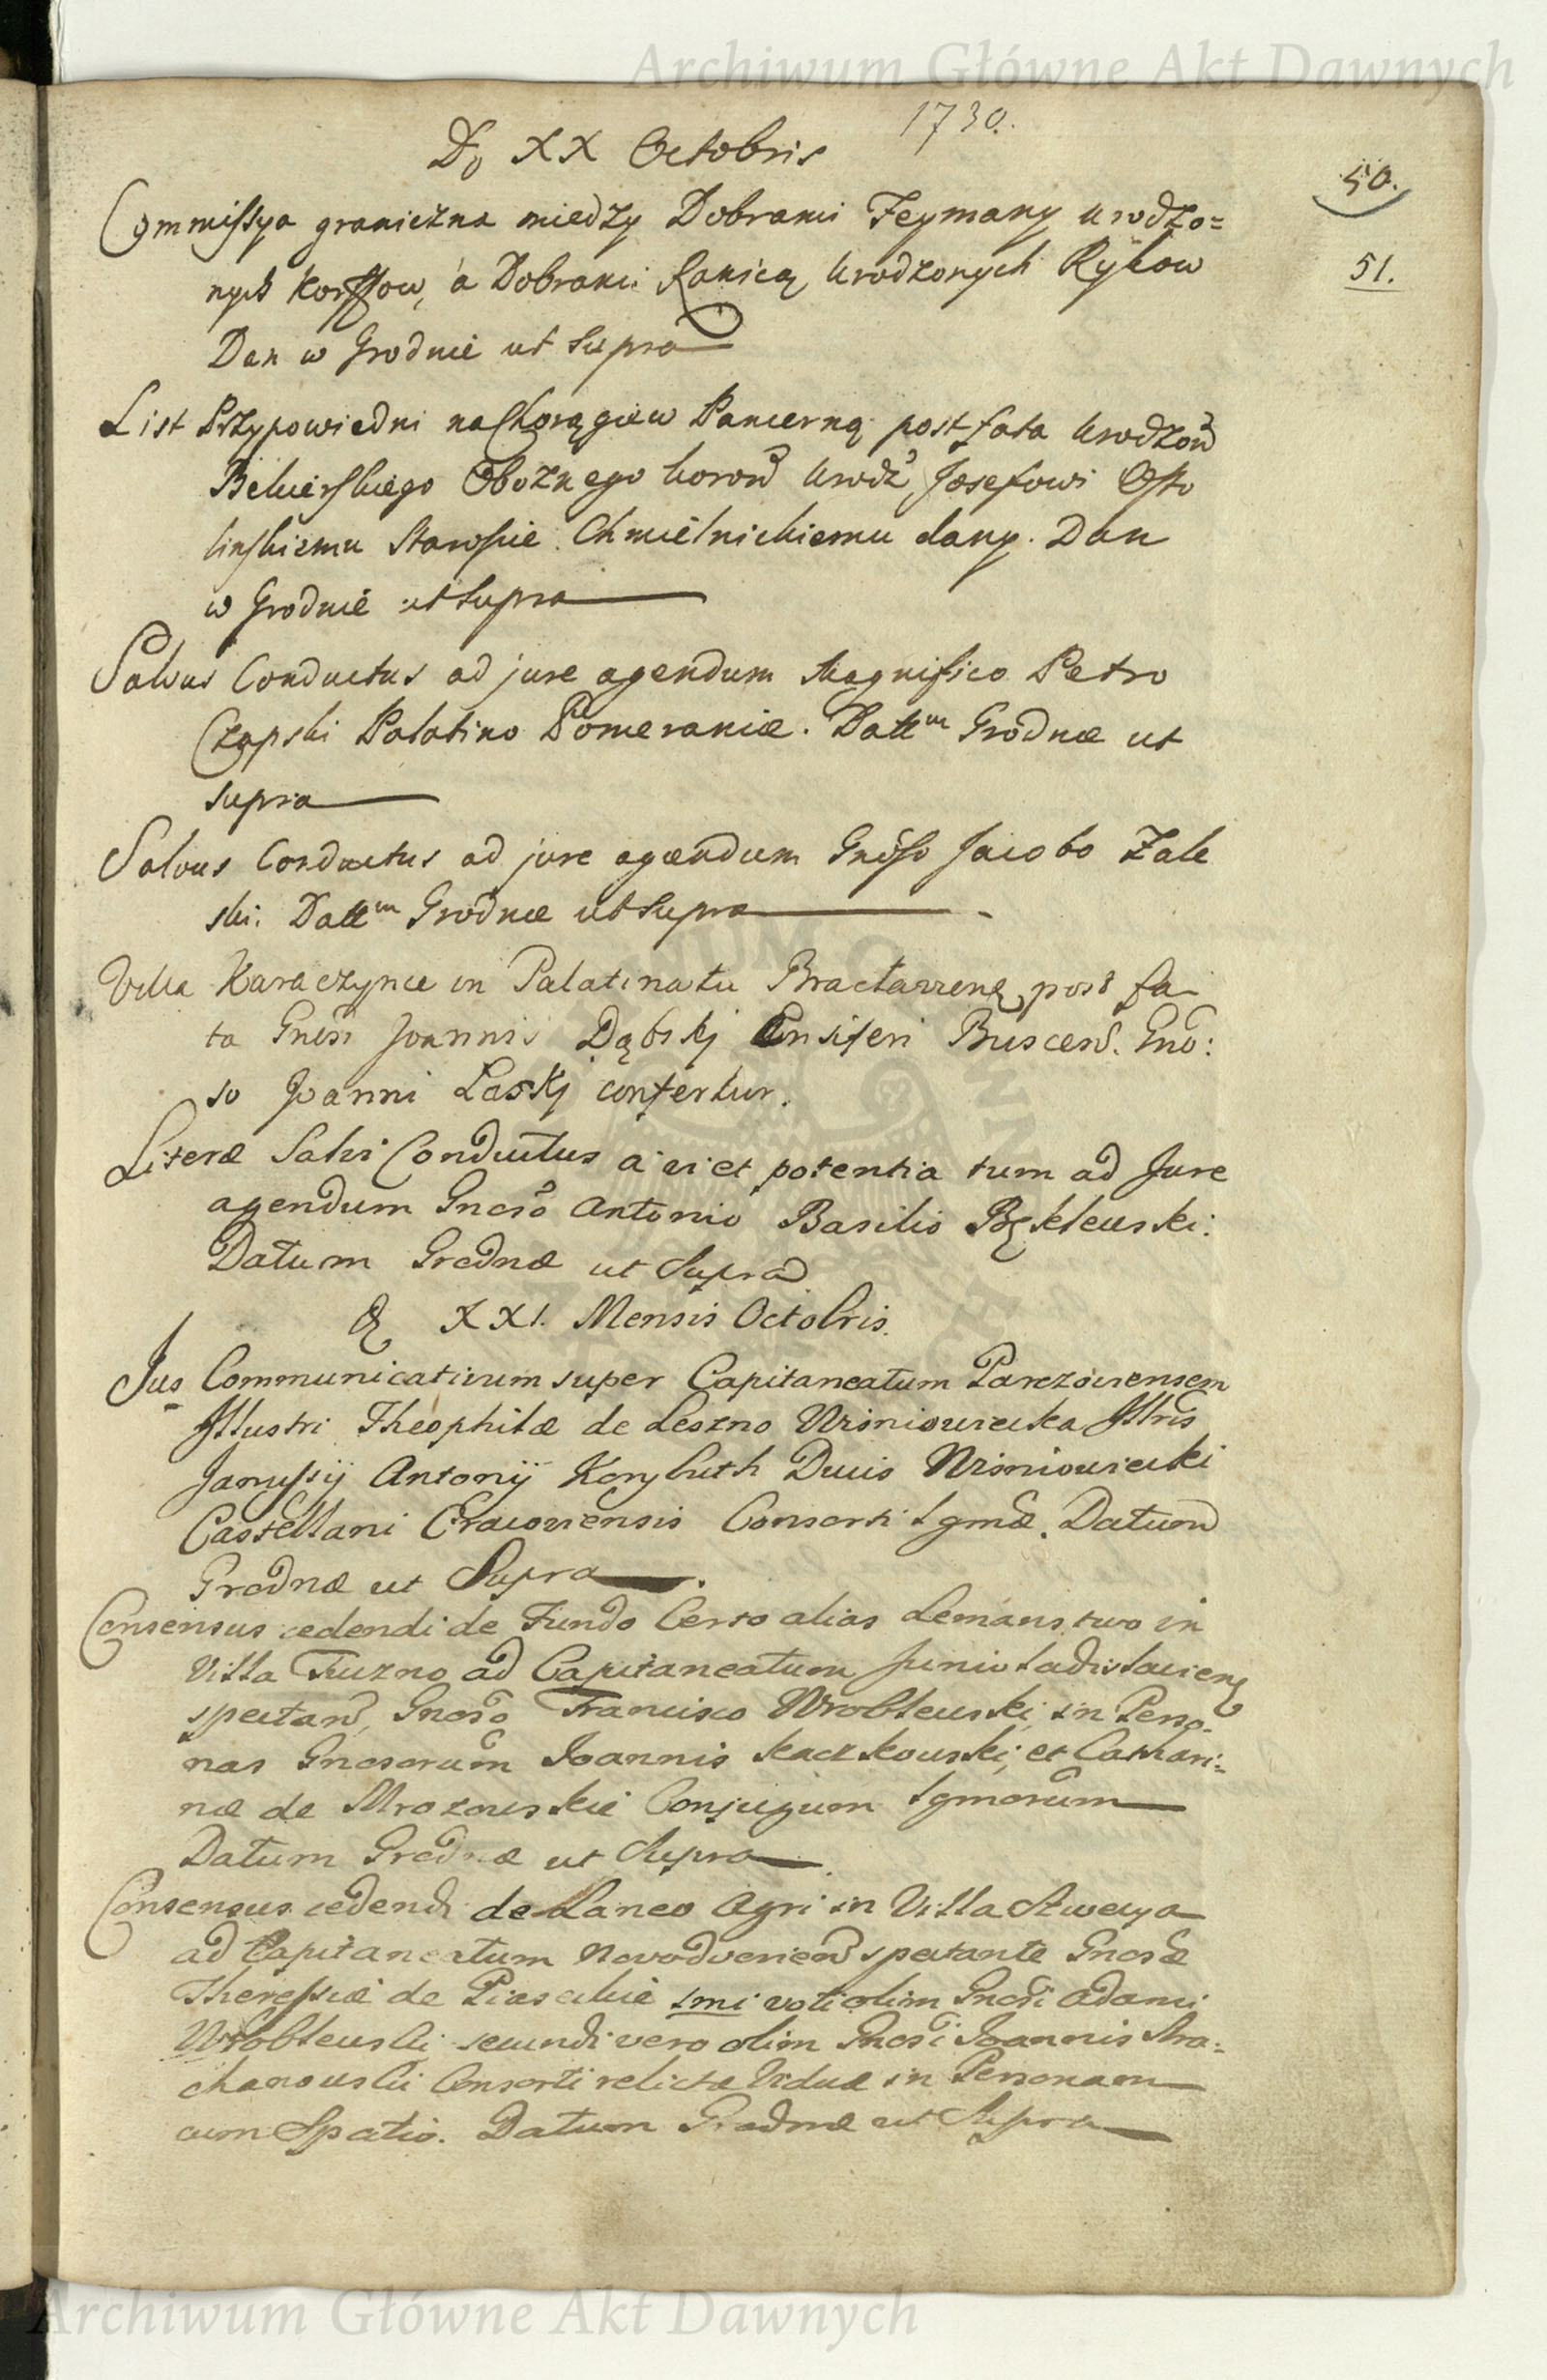 Archiwum Główne Akt Dawnych
1730.
D. XX Octobris
50.
51.
Commissya graniczna miedzy Dobrami Feymany Urodzo=
nych Korffow, a Dobrami Łanicą Urodzonych Rykow
Dan w Grodnie ut Supra
List Przypowiedni na Chorągiew Pancerną post fata Urodzon
Obożnego Koron Urodz Josefowi Osso
linskiemu Staroście Chmielnickiemu dany. Dan
w Grodnie ut Supra
Salvus Conductus ad jure agendum Magnifico Petro
Czapski Palatino Pomeraniæ. Dattm Grodnæ ut
supra
Salvus Conductus ad jure agendum Gnoso Jacobo Zale
ski. Dattm Grodnæ ut Supra
Villa Karaczynce in Palatinatu post fa
ta Gnosi Joannis Dąbskj Ensiferi Gno:
so Joanni Laskj confertur.
Literæ Salvi Conductus a vi et potentia tum ad Jure
agendum Gnoso Antonio Basilio
Datum Grodnæ ut Supra
D XXI. Mensis Octobris.
Jus Communicativum super Capitaneatum Parczoviensem
Illustri Theophilæ de Leszno Wisniowiecka Illris
Janussij Antonij Korybuth Ducis Wisniowiecki
Castellani Cracoviensis Consorti Lgmæ. Datum
Grodnæ ut Supra
Consensus cedendi de Fundo Certo alias Lemanstwo in
Villa ad Capitaneatum Juniuladislavien
spectan, Gnoso Francisco Wroblewski, in Perso=
nas Gnosorum Joannis Kaczkowski, et Cathari=
næ de Mrozowskie Conjugum Lgmorum
Datum Grodnæ ut Supra
Consensus cedendi de Laneo Agri in Villa
ad Capitaneatum spectante Gnosæ
Theressiæ de 1mi voti olim Gnosi Adami
Wroblewski secundi vero olim Gnosi Joannis Stra=
chanowski Consorti relictæ Viduæ in Personam
cum Spatio. Datum Grodnæ ut Supra
Archiwum Główne Akt Dawnych